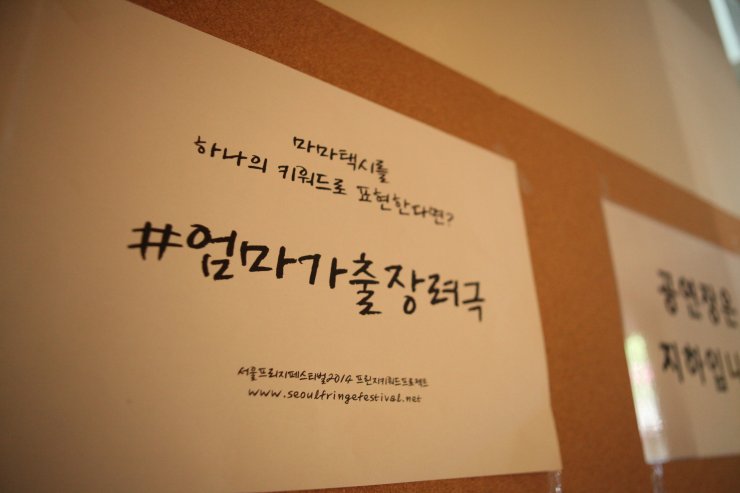 마마택시를
하나의 키워드로 표현한다면?
#엄마가출장려극
서울프린지페스티벌2014 프린지키워드프로젝트
www.seoulfringefestival.net
공연장은
지하입니